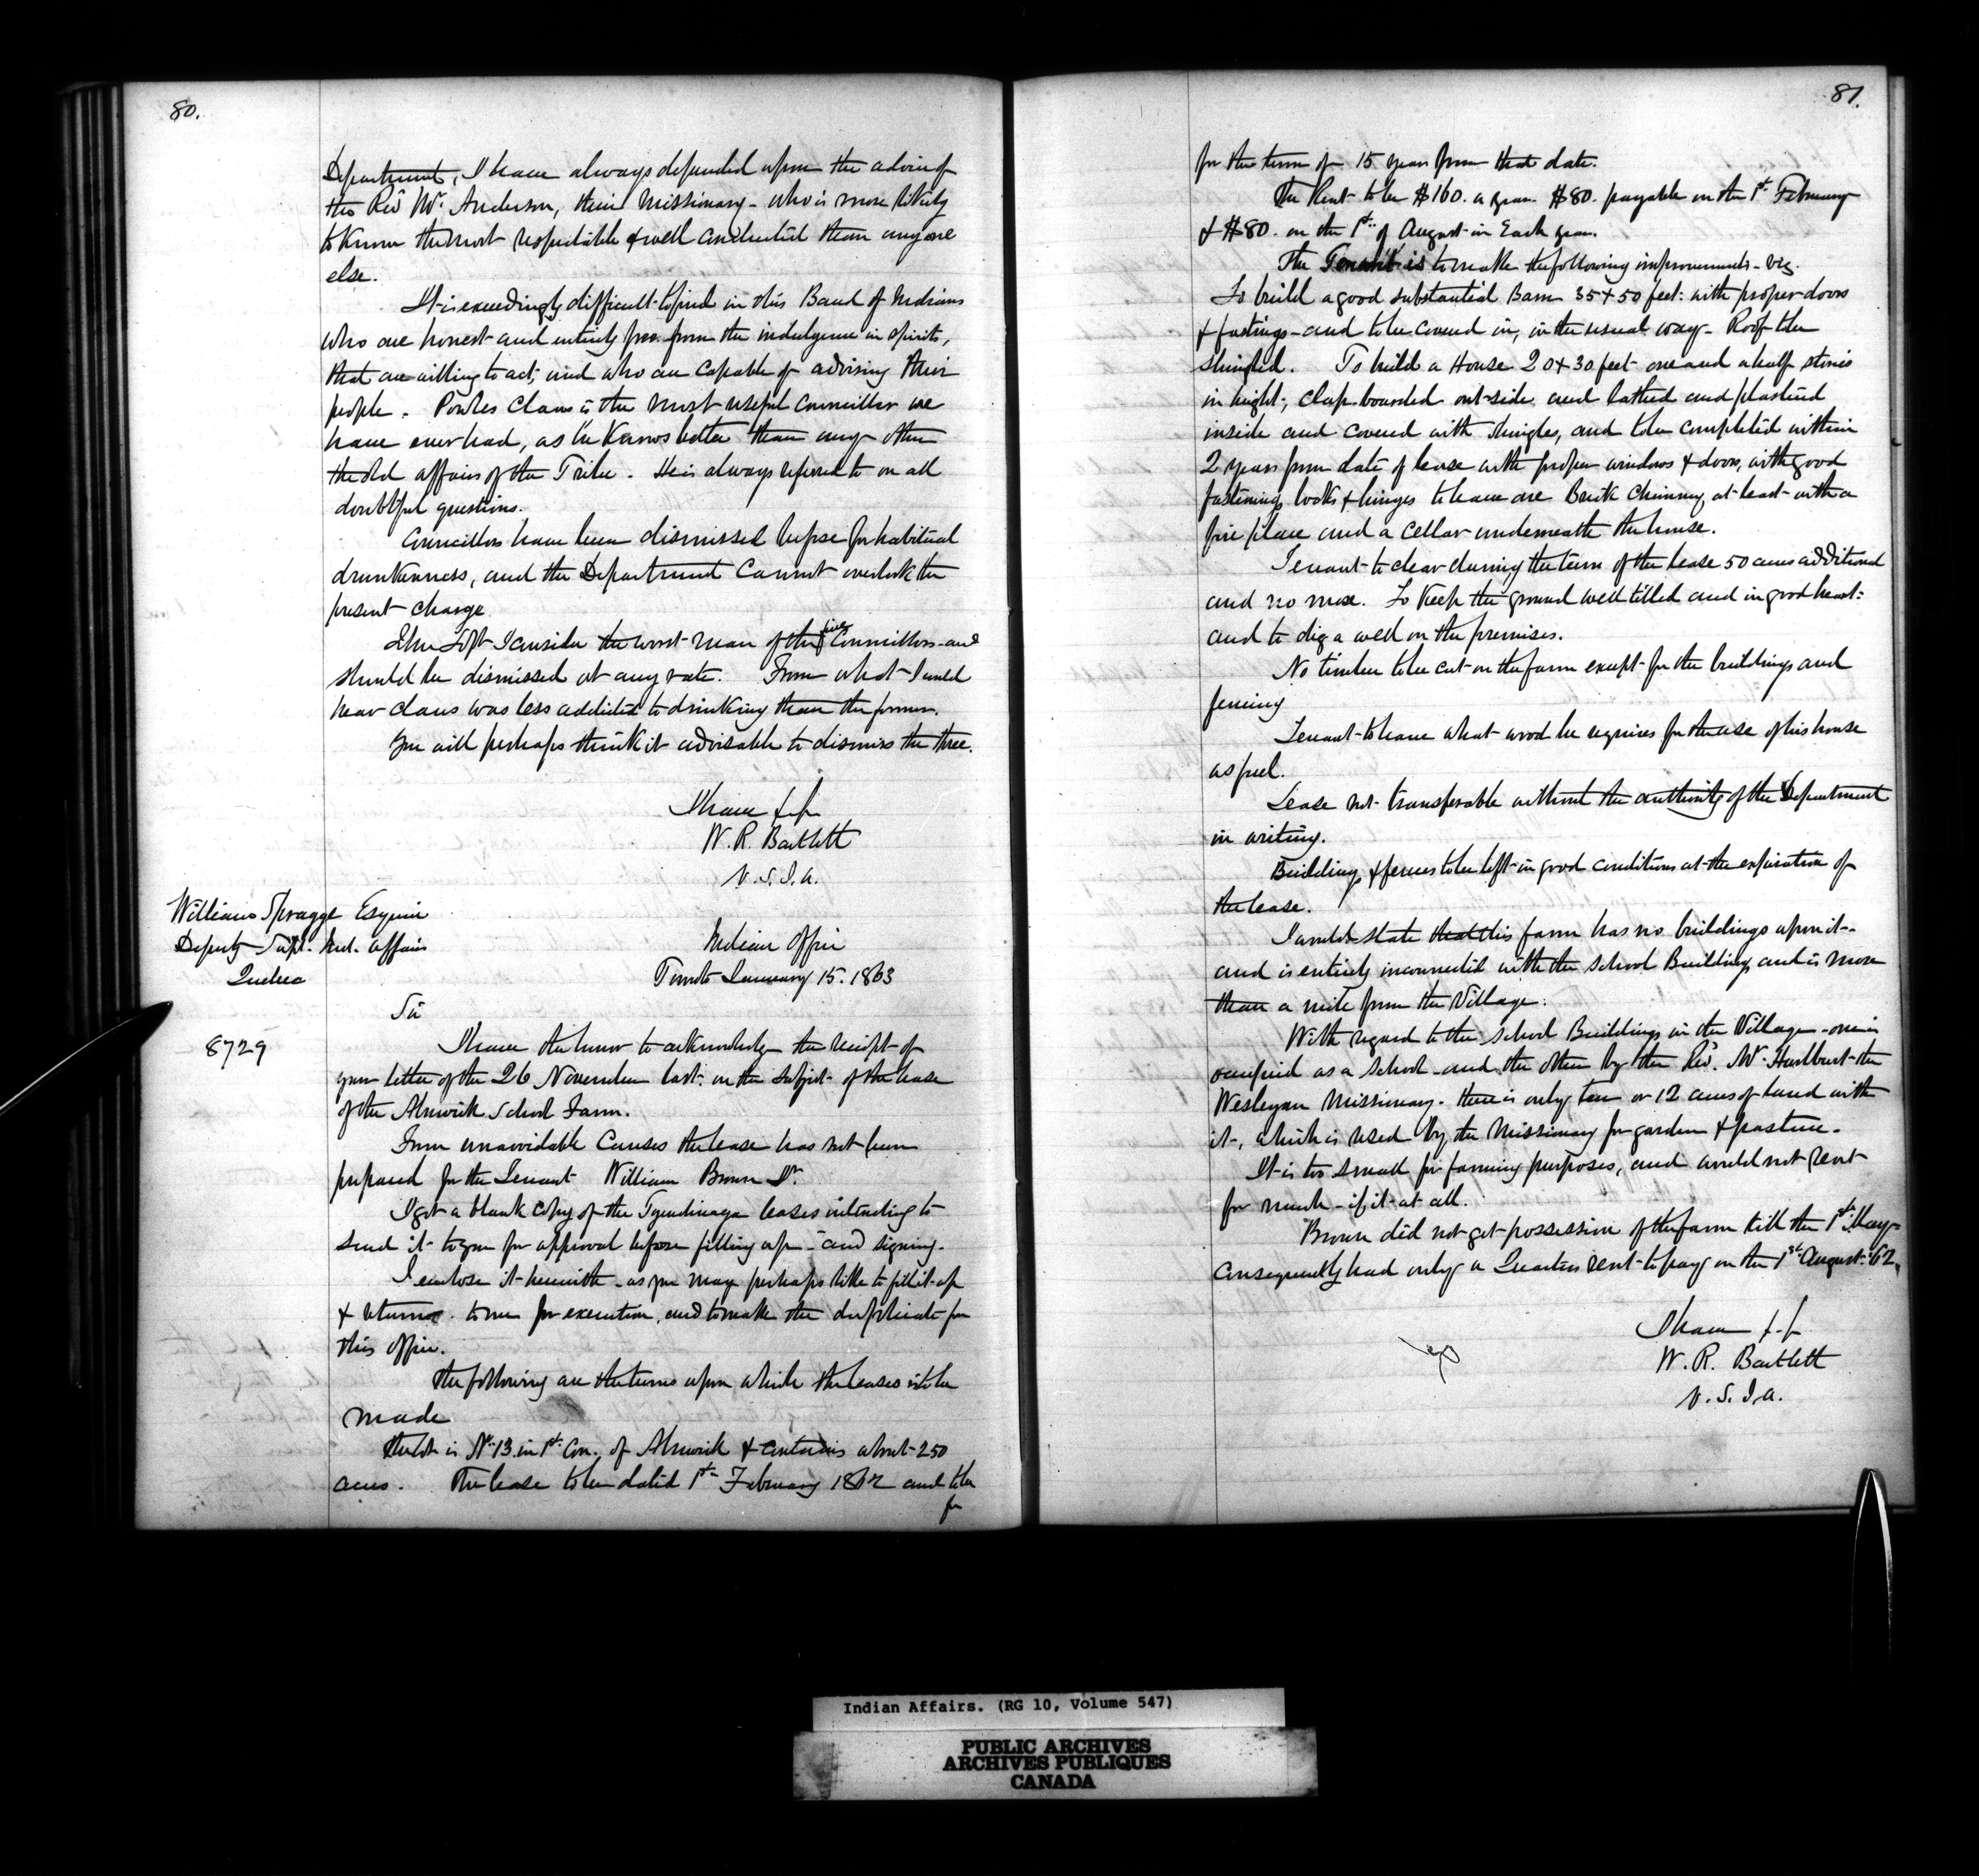 80.
Department, I have always depended upon the advice of
the Revd Mr. Anderson, their Missionary - who is more likely
to know the most respectable & well conducted than any one
else.
It is exceedingly difficult to find in this Band of Indians
who are honest and entirely free from the indulgence in spirits,
that are willing to act, and who are capable of advising their
people. Powles Claus is the most useful Councillor we
have ever had, as he knows better than any other
the old affairs of the Tribe. He is always referred to on all
doubtful questions.
Councillors have been dismissed before for habitual
drunkenness, and the Department cannot overlook the
present charge
John Loft I consider the worst man of the five Councillors - and
should be dismissed at any rate. From what I could
hear Claus was less addicted to drinking than the former.
You will perhaps think it advisable to dismiss the three.
I have &c
W. R. Bartlett
V. S. I. A.
William Spragge Esquire
Deputy Supt. Ind. Affairs
Quebec
Indian Office
Toronto January 15. 1863
Sir
8729
I have the honor to acknowledge the receipt of
your letter of the 26 November last: on the subject of the lease
of the Alnwick School Farm.
From unavoidable causes the lease has not been
prepared for the Tenant William Brown Jr.
I got a blank copy of the Tyendinaga leases intending to
send it to you for approval before filling up - and signing.
I enclose it herewith - as you may perhaps like to fill it up
& return to me for execution, and to make the duplicate for
this office.
The following are the terms upon which the leases is to be
made
The lot is No. 13 in 1st Con. of Alnwick & contains about 250
acres. The lease to be dated 1st February 1862 and to be
for
81.
for the term of 15 years from that date.
The Rent to be $160. a year. $80. payable on the 1st February
& $80. on the 1st of August in Each year.
The Tenant is to make the following improvements - viz.
To build a good substantial Barn 35 x 50 feet: with proper doors
& fastings - and to be covered in, in the usual way - Roof to be
shingled. To build a House 20 x 30 feet one and a half stories
in hight, clap-boarded out-side and lathed and plastered
inside and covered with shingles, and to be completed within
2 years from date of lease with proper windows & doors, with good
fastenings locks & hinges to have one Brick Chimney at least with a
fire place and a cellar underneath the house.
Tenant to clear during the term of the lease 50 acres additional
and no more. To keep the ground well tilled and in good heart:
and to dig a well on the premises.
No timber to be cut on the farm except for the buildings and
fencing
Tenant to have what wood he requires for the use of his house
as fuel.
Lease not transferable without the authority of the Department
in writing.
Buildings & fences to be left in good conditions at the expiration of
the lease.
I would state that this farm has no buildings upon it -
and is entirely inconnected with the School Buildings and is more
than a mile from the Village.
With regard to the School Buildings in the Village - one is
occupied as a School - and the other by the Revd. Mr. Hurlburt the
Wesleyan Missionary. there is only ten or 12 acres of land with
it, which is used by the Missionary for garden & pasture.
It is too small for farming purposes, and would not rent
for much - if it at all.
Brown did not get possession of the farm till the 1st May -
consequently had only a Quarters rent to pay on the 1st August '62.
I have &c
W. R. Bartlett
V. S. I. A.
Indian Affairs. (RG 10, Volume 547)
PUBLIC ARCHIVES
ARCHIVES PUBLIQUES
CANADA